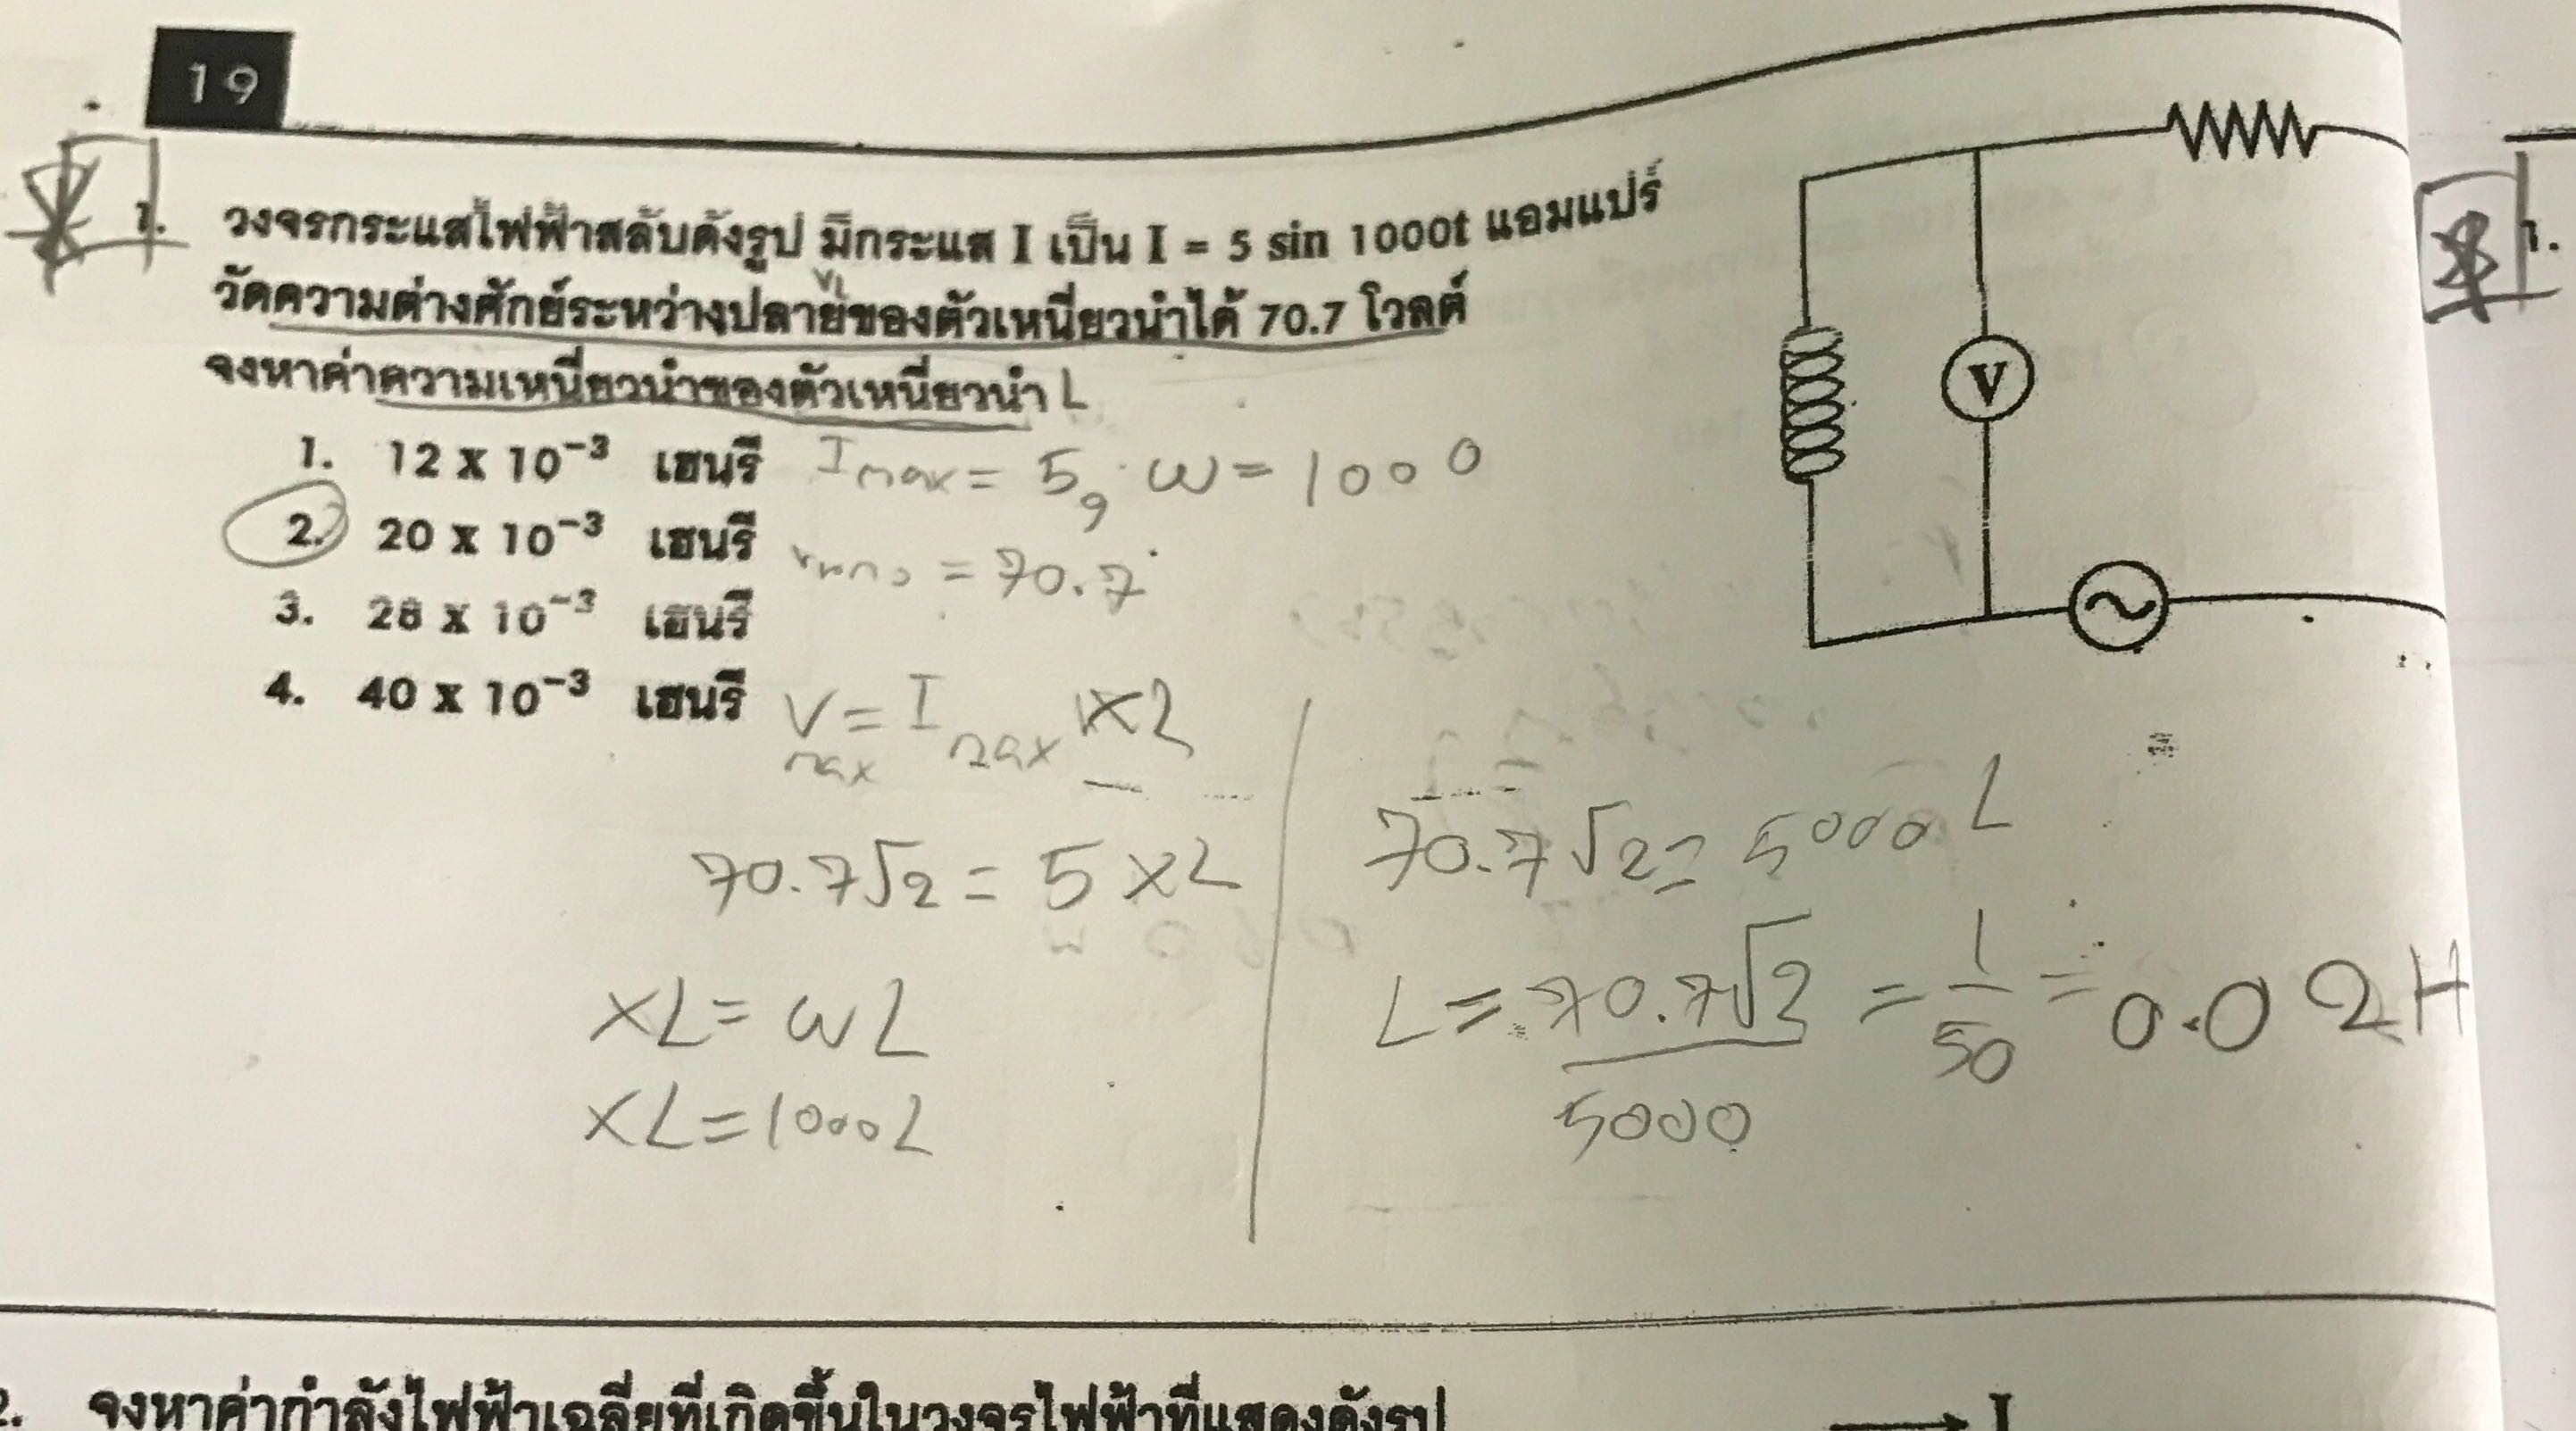 19
1. วงจรกระแสไฟฟ้าสลับดังรูป มีกระแส I เป็น I = 5 sin 1000t แอมแปร์
VL
วัดความต่างศักย์ระหว่างปลายของตัวเหนี่ยวนำได้ 70.7 โวลต์
จงหาค่าความเหนี่ยวนำของตัวเหนี่ยวนำ L
1. 12 x 10⁻³ เฮนรี
2. 20 x 10⁻³ เฮนรี
3. 28 x 10⁻³ เฮนรี
4. 40 x 10⁻³ เฮนรี
Imax = 5, ω = 1000
Vrms = 70.7
Vmax = Imax XL
70.7√2 = 5 XL
XL = ωL
XL = 1000L
70.7√2 = 5000 L
L = 70.7√2 / 5000 = 1/50 = 0.02 H
V
1.
2. จงหาค่ากำลังไฟฟ้าเฉลี่ยที่เกิดขึ้นในวงจรไฟฟ้าที่แสดงดังรูป
I